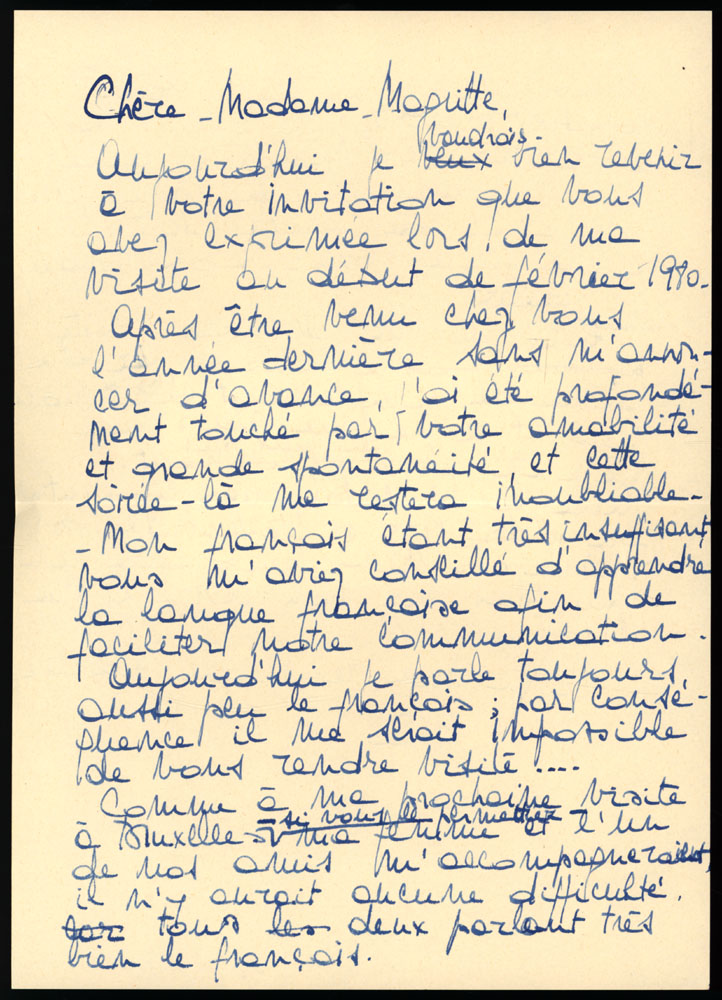 Chère Madame Magritte,
voudrais
Aujourd'hui je veux bien revenir
à votre invitation que vous
avez exprimée lors de ma
visite au début de février 1980.
Après être venu chez vous
l'année dernière sans m'annon-
cer d'avance, j'ai été profondé-
ment touché par votre amabilité
et grande spontanéité, et cette
soirée-là me restera inoubliable.
- Mon français étant très insuffisant,
vous m'aviez conseillé d'apprendre
la langue française afin de
faciliter notre communication.
Aujourd'hui je parle toujours
aussi peu le français ; par consé-
quence il me serait impossible
de vous rendre visite ....
Comme à ma prochaine visite
si vous le permettez
à Bruxelles ma femme et l'un
de nos amis m'accompagneraient,
il n'y aurait aucune difficulté.
car tous les deux parlant très
bien le français.